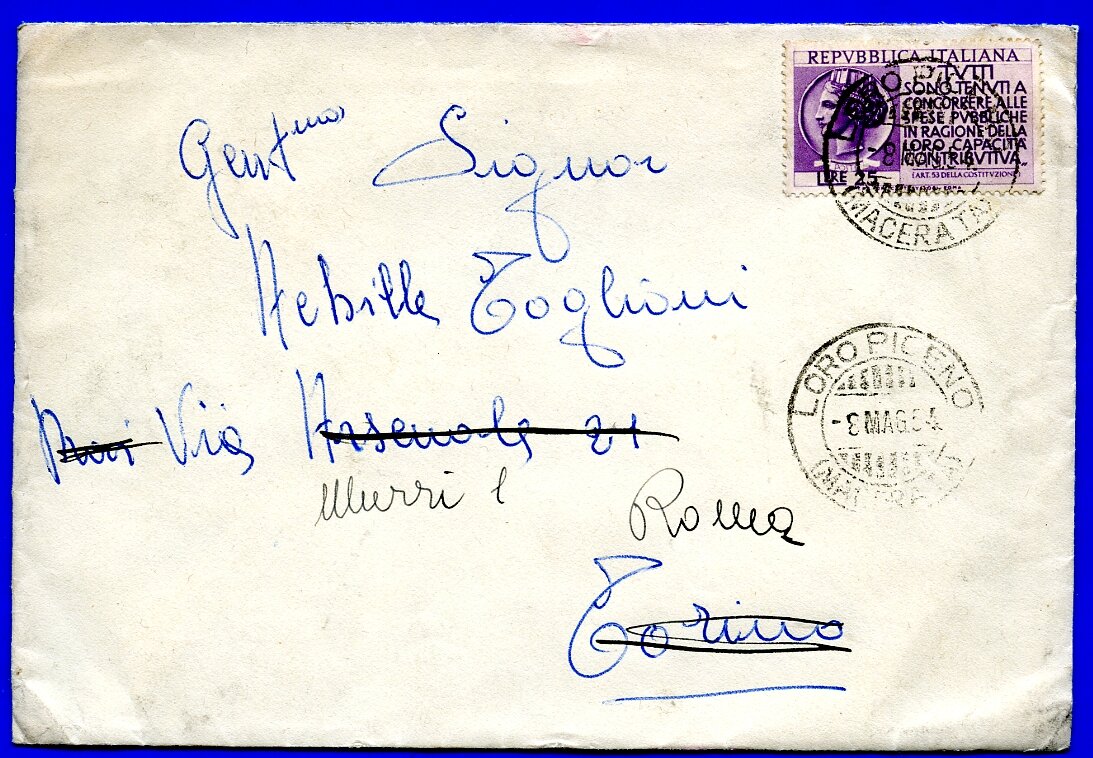 REPVBBLICA ITALIANA
"TVTTI
SONO TENVTI A
CONCORRERE ALLE
SPESE PVBBLICHE
IN RAGIONE DELLA
LORO CAPACITÀ
CONTRIBVTIVA"
(ART. 53 DELLA COSTITVZIONE)
LIRE 25
(MACERATA)
Gent.mo Signor
Achille Toglioni
Via Arsenale 21
Murri 1 Roma
Torino
LORO PICENO
MAG 54
(MACERATA)